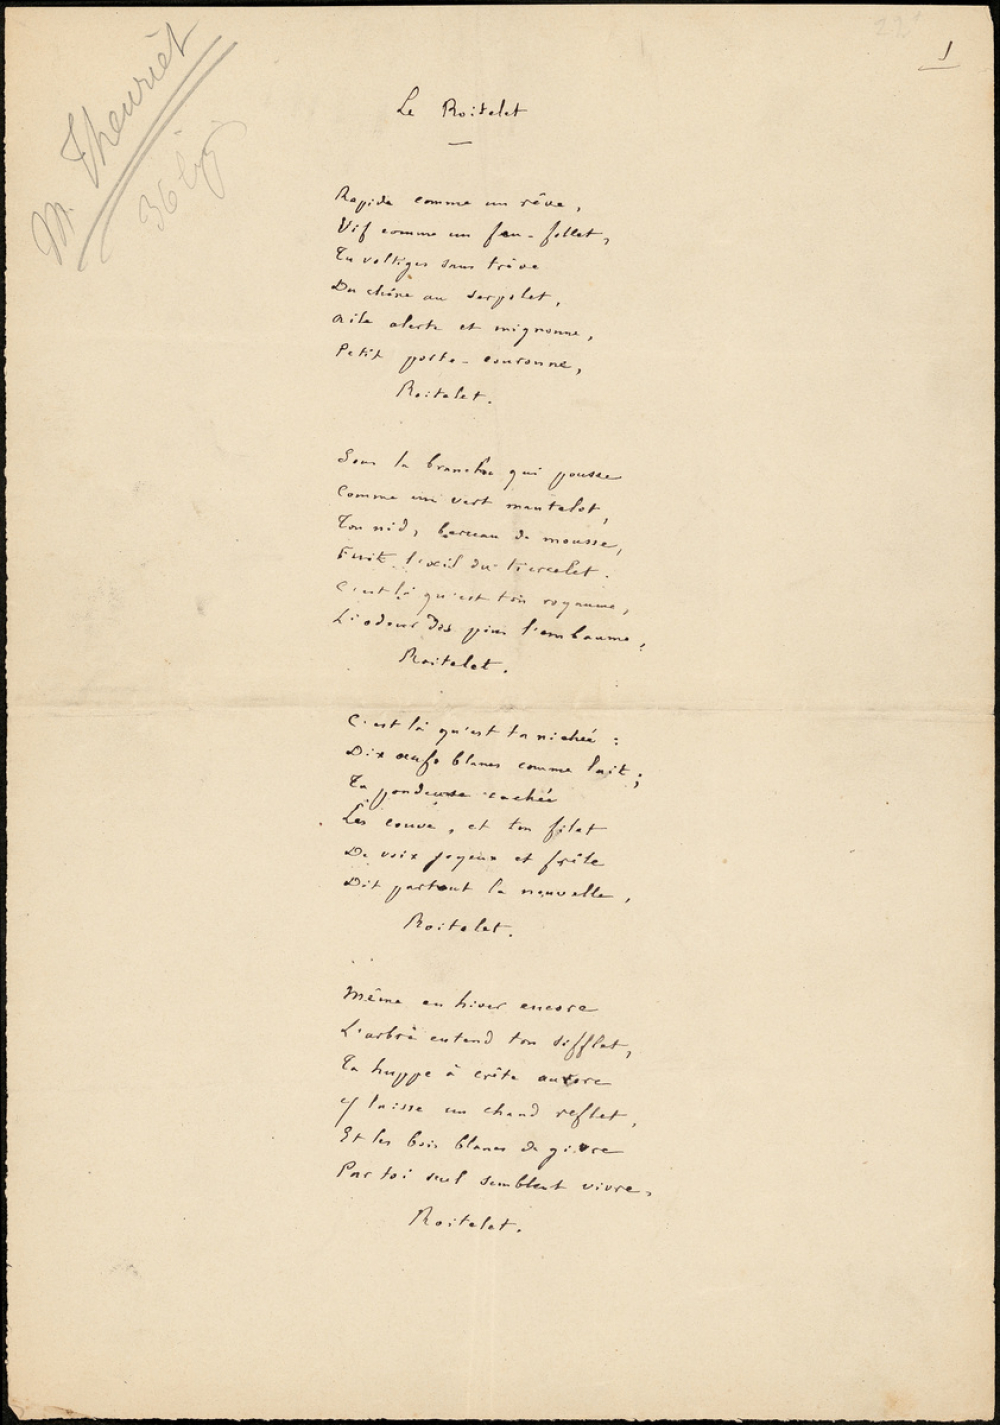 M. Theuriet
36 lig
221
1
Le Roitelet
Rapide comme un rêve,
Vif comme un feu-follet,
Tu voltiges sans trêve
Du chêne au serpolet,
Aile alerte et mignonne,
Petit porte-couronne,
Roitelet.
Sous la branche qui pousse
Comme un vert mantelet,
Ton nid, berceau de mousse,
Evite l'œil du tiercelet.
C'est là qu'est ton royaume,
L'odeur des pins l'embaume,
Roitelet.
C'est là qu'est ta nichée :
Dix œufs blancs comme lait ;
Ta pondeuse cachée
Les couve, et ton filet
De voix joyeux et frêle
Dit partout la nouvelle,
Roitelet.
Même en hiver encore
L'arbre entend ton sifflet,
Ta huppe à crête aurore
Y laisse un chaud reflet,
Et les bois blancs de givre
Par toi seul semblent vivre,
Roitelet.